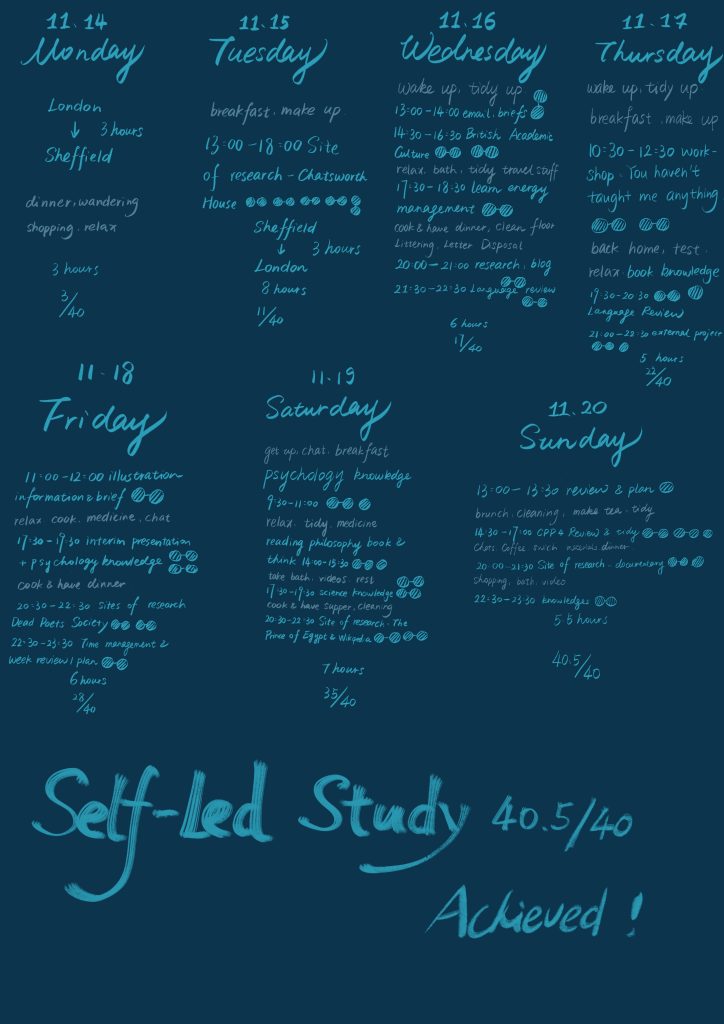 11.14
Monday
London
↓ 3 hours
Sheffield
dinner, wandering
shopping. relax
3 hours
3/40
11.15
Tuesday
breakfast. make up.
13:00-18:00 Site
of research - Chatsworth
House
Sheffield
↓ 3 hours
London
8 hours
11/40
11.16
Wednesday
Wake up, tidy up
13:00-14:00 email. briefs
14:30-16:30 British Academic
Culture
relax. bath. tidy travel stuff
17:30-18:30 learn energy
management
cook & have dinner, clean floor
Littering. Letter Disposal
20:00-21:00 research. blog
21:30-22:30 Language review
6 hours
17/40
11.17
Thursday
wake up, tidy up.
breakfast. make up
10:30-12:30 work-
shop. You haven't
taught me anything
back home, test.
relax book knowledge
19:30-20:30
Language Review
21:00-22:30 external project
5 hours
22/40
11.18
Friday
11:00-12:00 illustration
information & brief
relax cook. medicine. chat
17:30-19:30 interim presentation
+ psychology knowledge
cook & have dinner
20:30-22:30 Sites of research
Dead Poets Society
22:30-23:30 Time management &
week review / plan
6 hours
28/40
11.19
Saturday
get up. chat. breakfast
psychology knowledge
9:30-11:00
relax. tidy. medicine
reading philosophy book &
think 14:00-15:30
take bath. videos. rest
17:30-19:30 science knowledge
cook & have supper. cleaning
20:30-22:30 Site of research. The
Prince of Egypt & Wikipedia
7 hours
35/40
11.20
Sunday
13:00-13:30 review & plan
brunch. cleaning. make tea. tidy
14:30-17:00 CPP4 Review & tidy
Chats Coffee switch materials dinner.
20:00-21:30 Site of research. documentary
shopping. bath. video
22:30-23:30 knowledges
5.5 hours
40.5/40
Self-Led Study 40.5/40
Achieved!